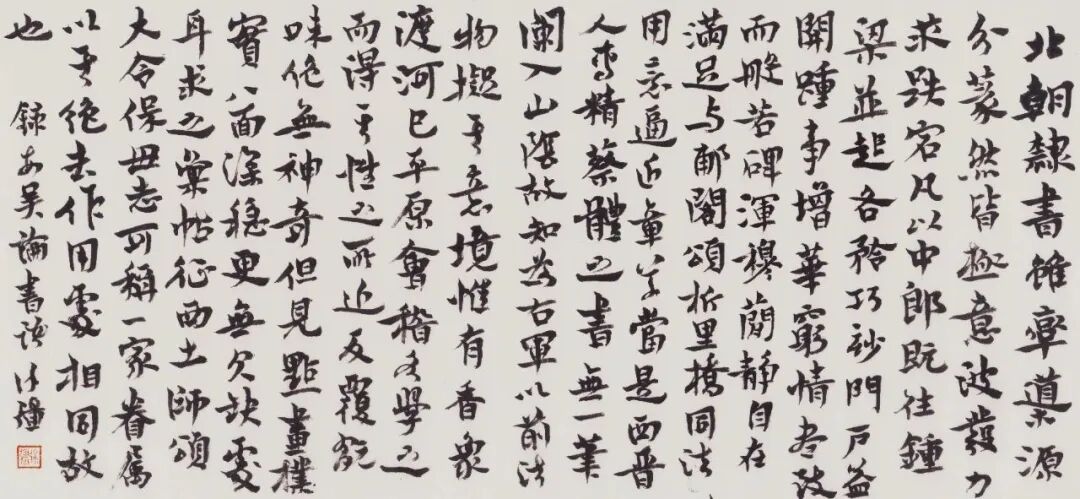 北朝隸書雖率導源
分篆然皆極意波發力
求跌宕凡以中郎既往鍾
梁並起各矜巧妙門戶益
開踵事增華窮情盡致
而般若碑渾穆簡靜自在
滿足与郙閣頌析里橋同法
用意逼近章草當是西晉
人專精蔡體之書無一筆
闌入山陰故知為右軍以前法
物擬其意境惟有香象
渡河已平原會稽各學之
而得其性之所近反覆玩
味絕無神奇但見點畫樸
實八面深穩更無欠缺處
耳求之彙帖征西土師頌
大令保母志可稱一家眷屬
以其絕去作用處相同故
也
錄安吳論書語